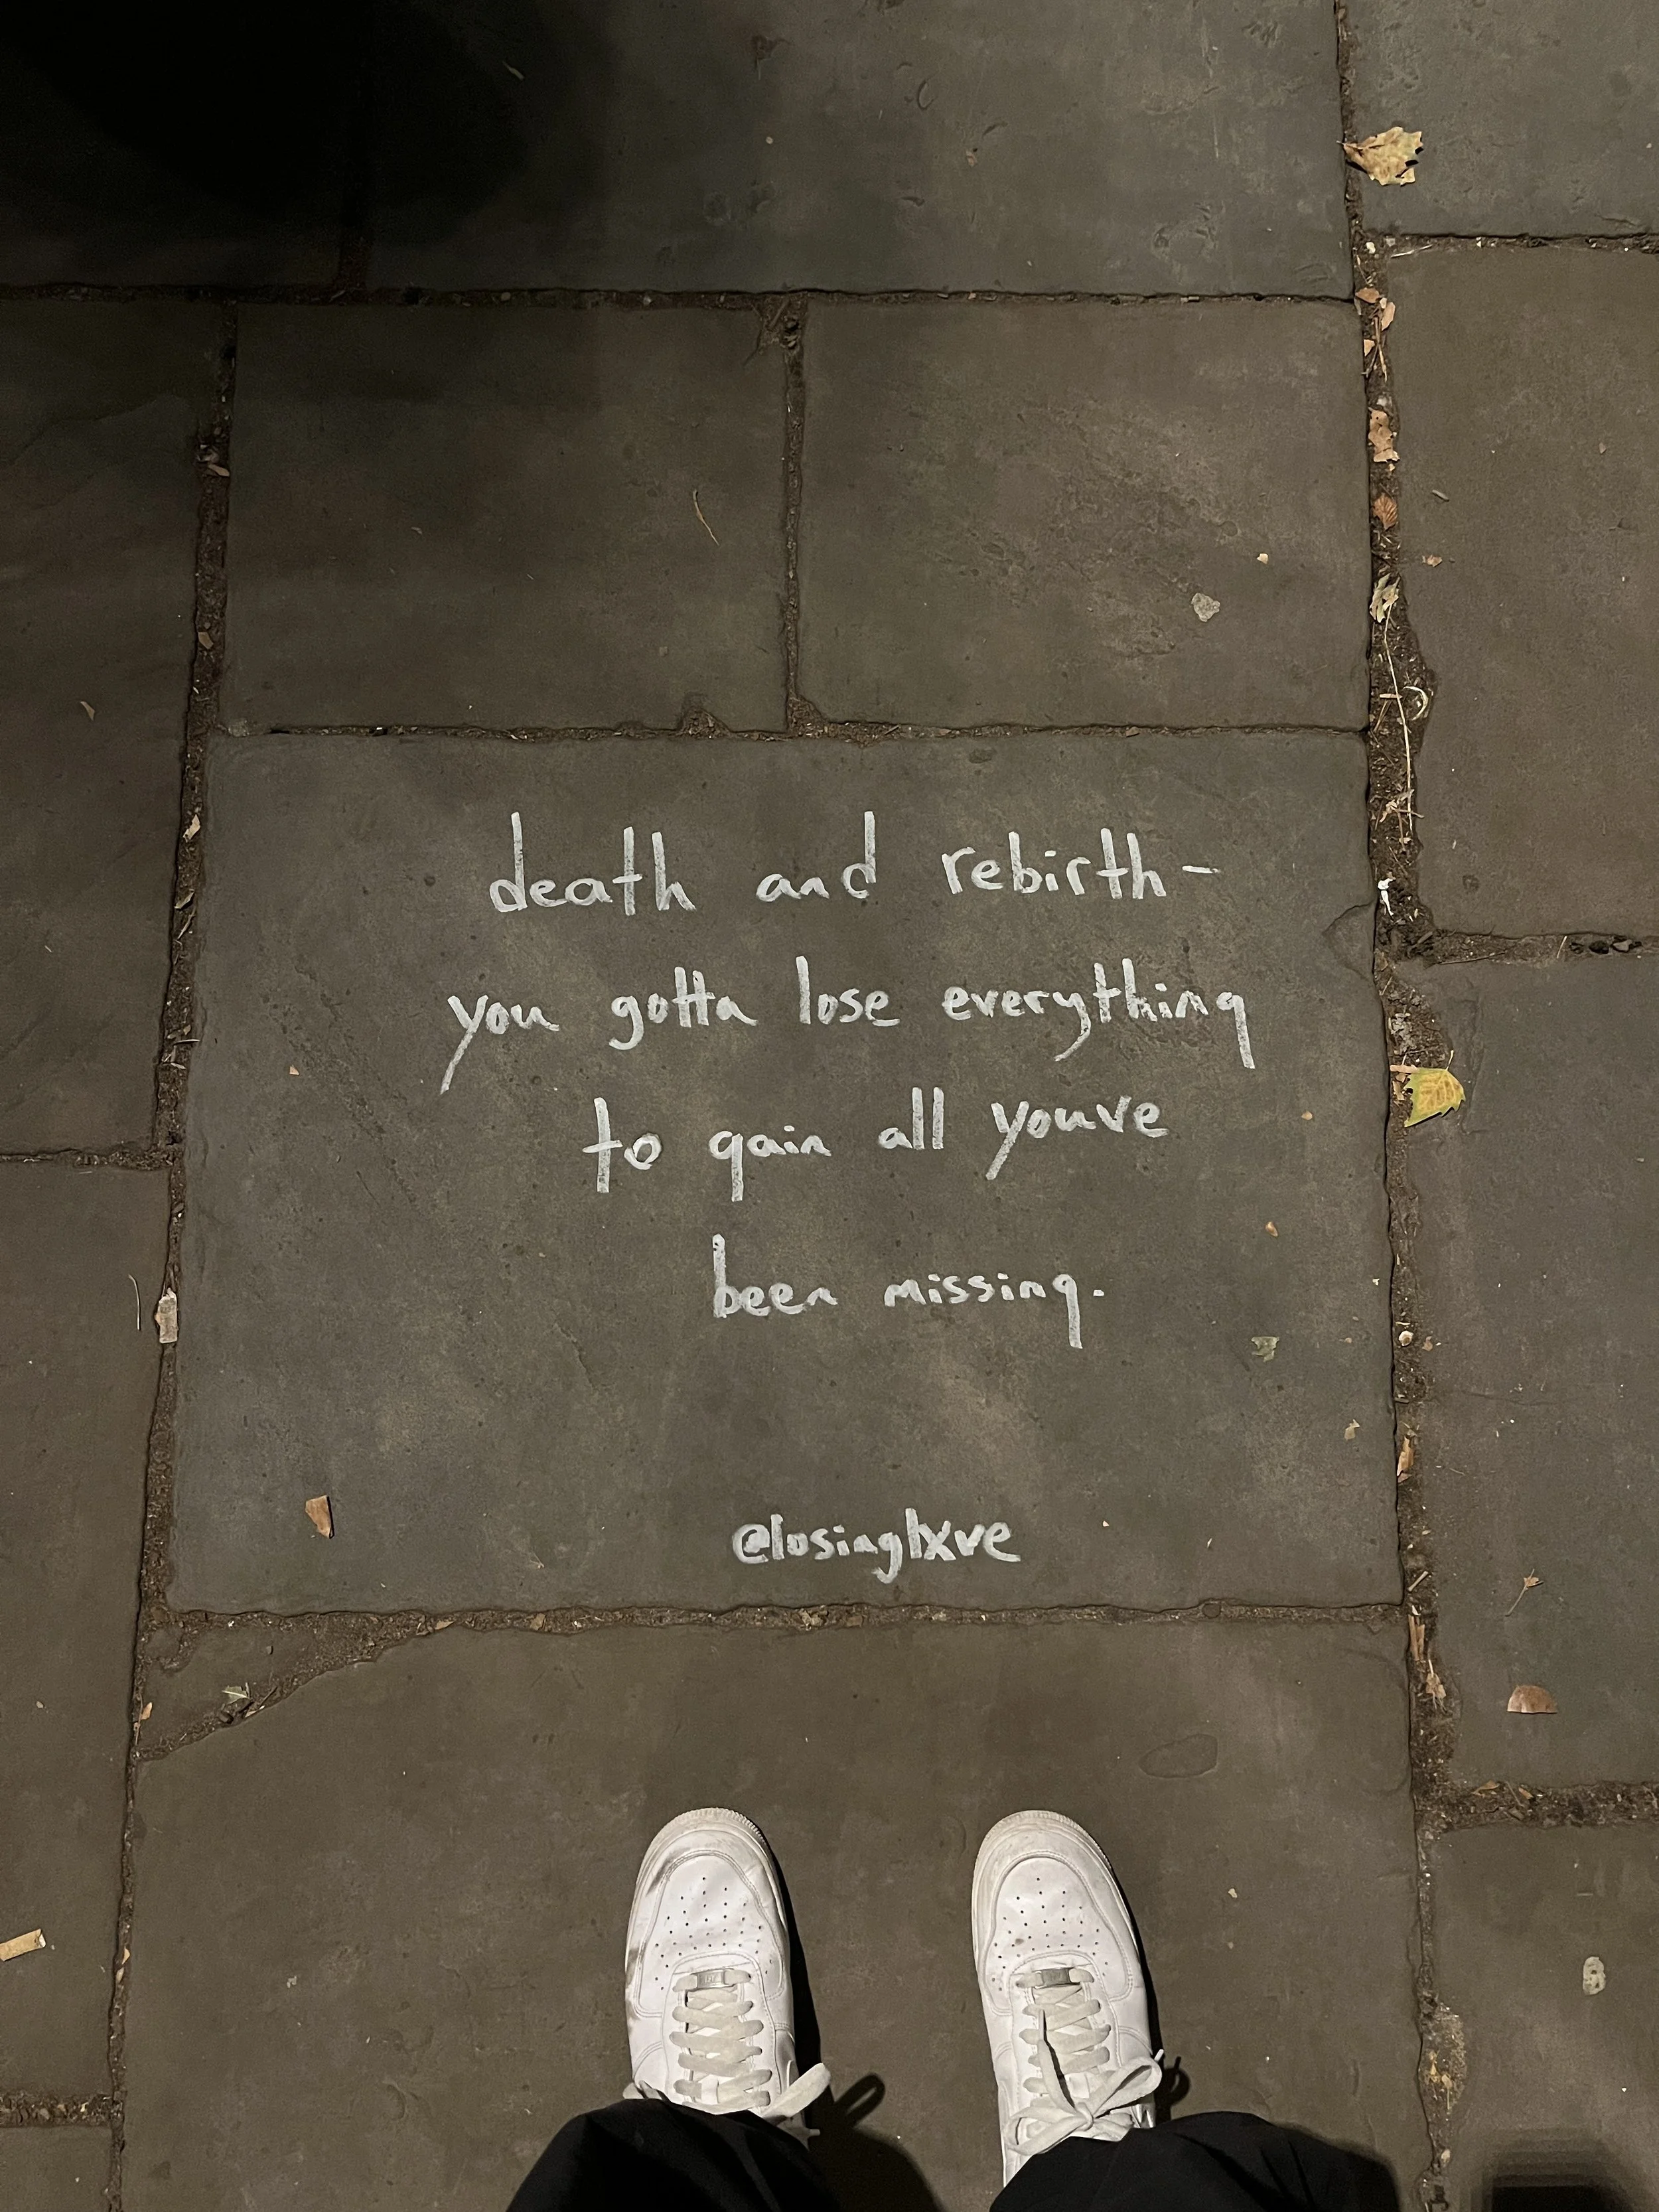 death and rebirth-
you gotta lose everything
to gain all youve
been missing.
@losinglxve